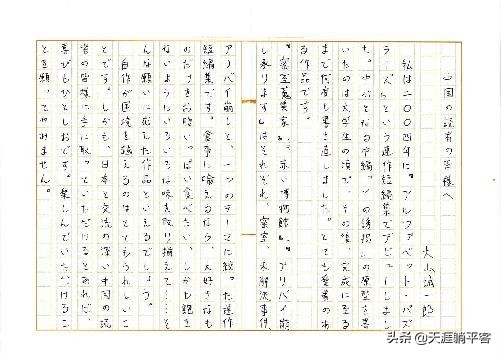 中国の読者の皆様へ
大山誠一郎
私は二〇〇四年に『アルファベット・パズ
ラーズ』という連作短編集でデビューしまし
た。中心となる中編「Yの誘拐」の原型を書
いたのは大学生の頃で、その後、完成に至る
まで何度も書き直しました。とても愛着のあ
る作品です。
『密室蒐集家』、『赤い博物館』、『アリバイ崩
し承ります』はそれぞれ、密室、未解決事件、
アリバイ崩しと、一つのテーマに絞った連作
短編集です。食事に喩えるなら、大好きなも
のだけをお腹いっぱい食べたい、しかし飽き
ないようにいろいろな味も取り揃えて……そ
んな願いに応えた作品といえるでしょう。
自作が国境を越えるのはとてもうれしいこ
とです。しかも、日本と交流の深い中国の読
者の皆様に手に取っていただけるとあれば、
喜びもひとしおです。楽しんでいただけるこ
とを願ってやみません。
头条 @天涯躺平客